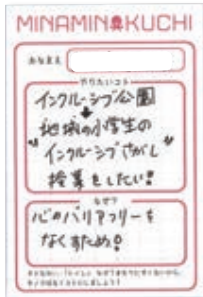 MINAMIN KUCHI
おなまえ
やりたいコト
インクルーシブ公園
地域の小学生の
"インクルーシブさがし"
授業をしたい!
なぜ?
心のバリアフリーを
なくすため!